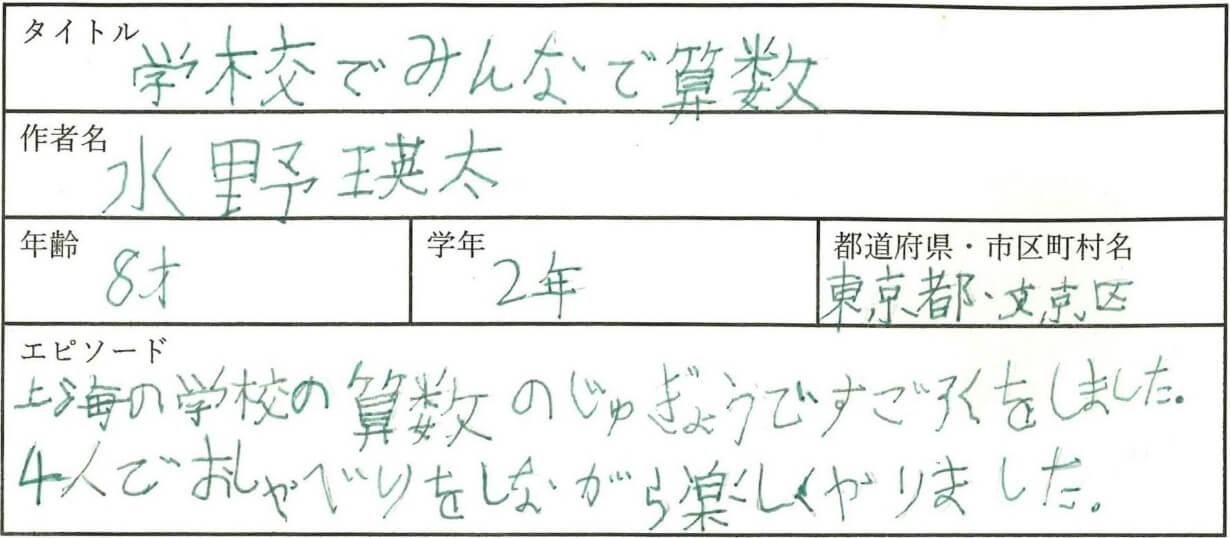 タイトル
学校でみんなで算数
作者名
水野瑛太
年齢
8才
学年
2年
都道府県・市区町村名
東京都・文京区
エピソード
上海の学校の算数のじゅぎょうですご六をしました。
4人でおしゃべりをしながら楽しくやりました。